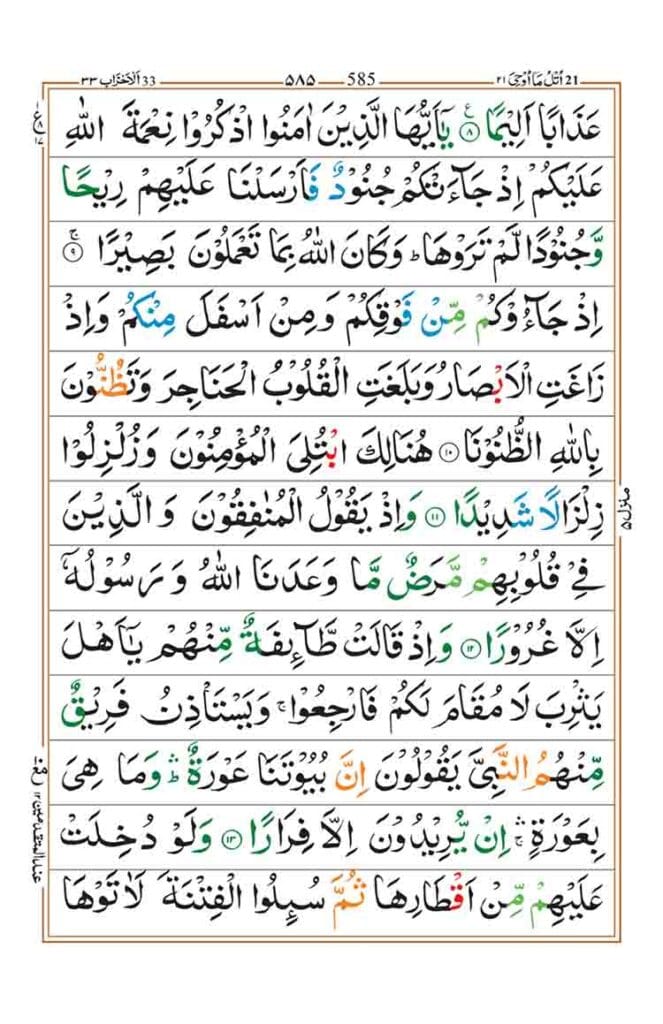 21 اُتْلُ مَا اُوْحِیَ ۲۱ 585 ۵۸۵ 33 اَلْاَحْزَاب ۳۳
عَذَابًا اَلِيْمًا ۟ع ۸ يٰۤاَيُّهَا الَّذِيْنَ اٰمَنُوا اذْكُرُوْا نِعْمَةَ اللّٰهِ
عَلَيْكُمْ اِذْ جَآءَتْكُمْ جُنُوْدٌ فَاَرْسَلْنَا عَلَيْهِمْ رِيْحًا
وَّجُنُوْدًا لَّمْ تَرَوْهَا ؕ وَكَانَ اللّٰهُ بِمَا تَعْمَلُوْنَ بَصِيْرًا ۚ ۹
اِذْ جَآءُوْكُمْ مِّنْ فَوْقِكُمْ وَمِنْ اَسْفَلَ مِنْكُمْ وَاِذْ
زَاغَتِ الْاَبْصَارُ وَبَلَغَتِ الْقُلُوْبُ الْحَنَاجِرَ وَتَظُنُّوْنَ
بِاللّٰهِ الظُّنُوْنَا ۱۰ هُنَالِكَ ابْتُلِىَ الْمُؤْمِنُوْنَ وَزُلْزِلُوْا
زِلْزَالًا شَدِيْدًا ۱۱ وَاِذْ يَقُوْلُ الْمُنٰفِقُوْنَ وَالَّذِيْنَ
فِىْ قُلُوْبِهِمْ مَّرَضٌ مَّا وَعَدَنَا اللّٰهُ وَرَسُوْلُهٗۤ
اِلَّا غُرُوْرًا ۱۲ وَاِذْ قَالَتْ طَّآٮِٕفَةٌ مِّنْهُمْ يٰۤاَهْلَ
يَثْرِبَ لَا مُقَامَ لَكُمْ فَارْجِعُوْا ۚ وَيَسْتَاْذِنُ فَرِيْقٌ
مِّنْهُمُ النَّبِىَّ يَقُوْلُوْنَ اِنَّ بُيُوْتَنَا عَوْرَةٌ ۛؕ وَمَا هِىَ
بِعَوْرَةٍ ۛۚ اِنْ يُّرِيْدُوْنَ اِلَّا فِرَارًا ۱۳ وَلَوْ دُخِلَتْ
عَلَيْهِمْ مِّنْ اَقْطَارِهَا ثُمَّ سُٮِٕلُوا الْفِتْنَةَ لَاٰتَوْهَا
منزل ۵